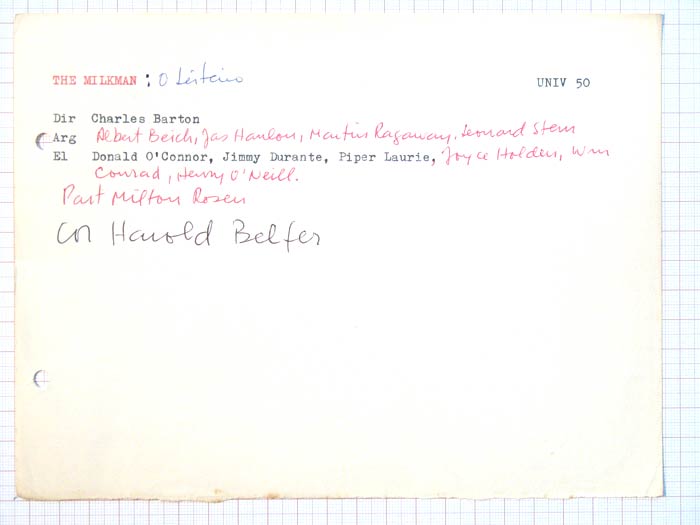 THE MILKMAN : O Leiteiro UNIV 50
Dir Charles Barton
Arg Albert Beich, Jas Hanlon, Martin Ragaway, Leonard Stern
El Donald O'Connor, Jimmy Durante, Piper Laurie, Joyce Holden, Wm
Conrad, Henry O'Neill.
Part Milton Rosen
Cor Harold Belfer